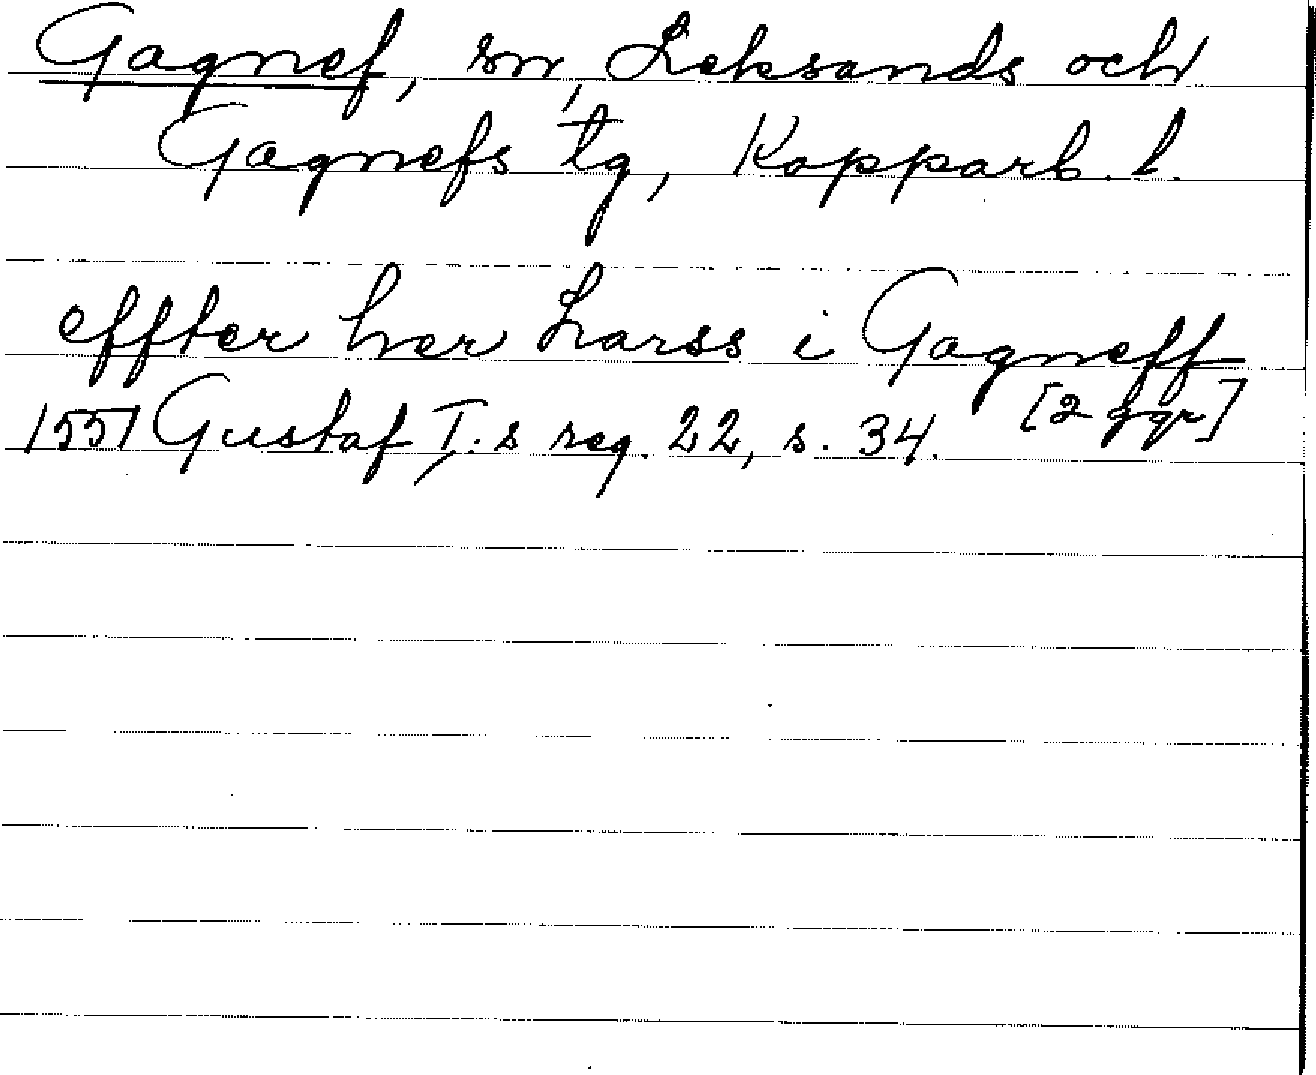 Gagnef, sn, Leksands och
Gagnefs tg, Kopparb. l.
effter her Larss i Gagneff
[2 ggr]
1551 Gustaf I:s reg. 22, s. 34.